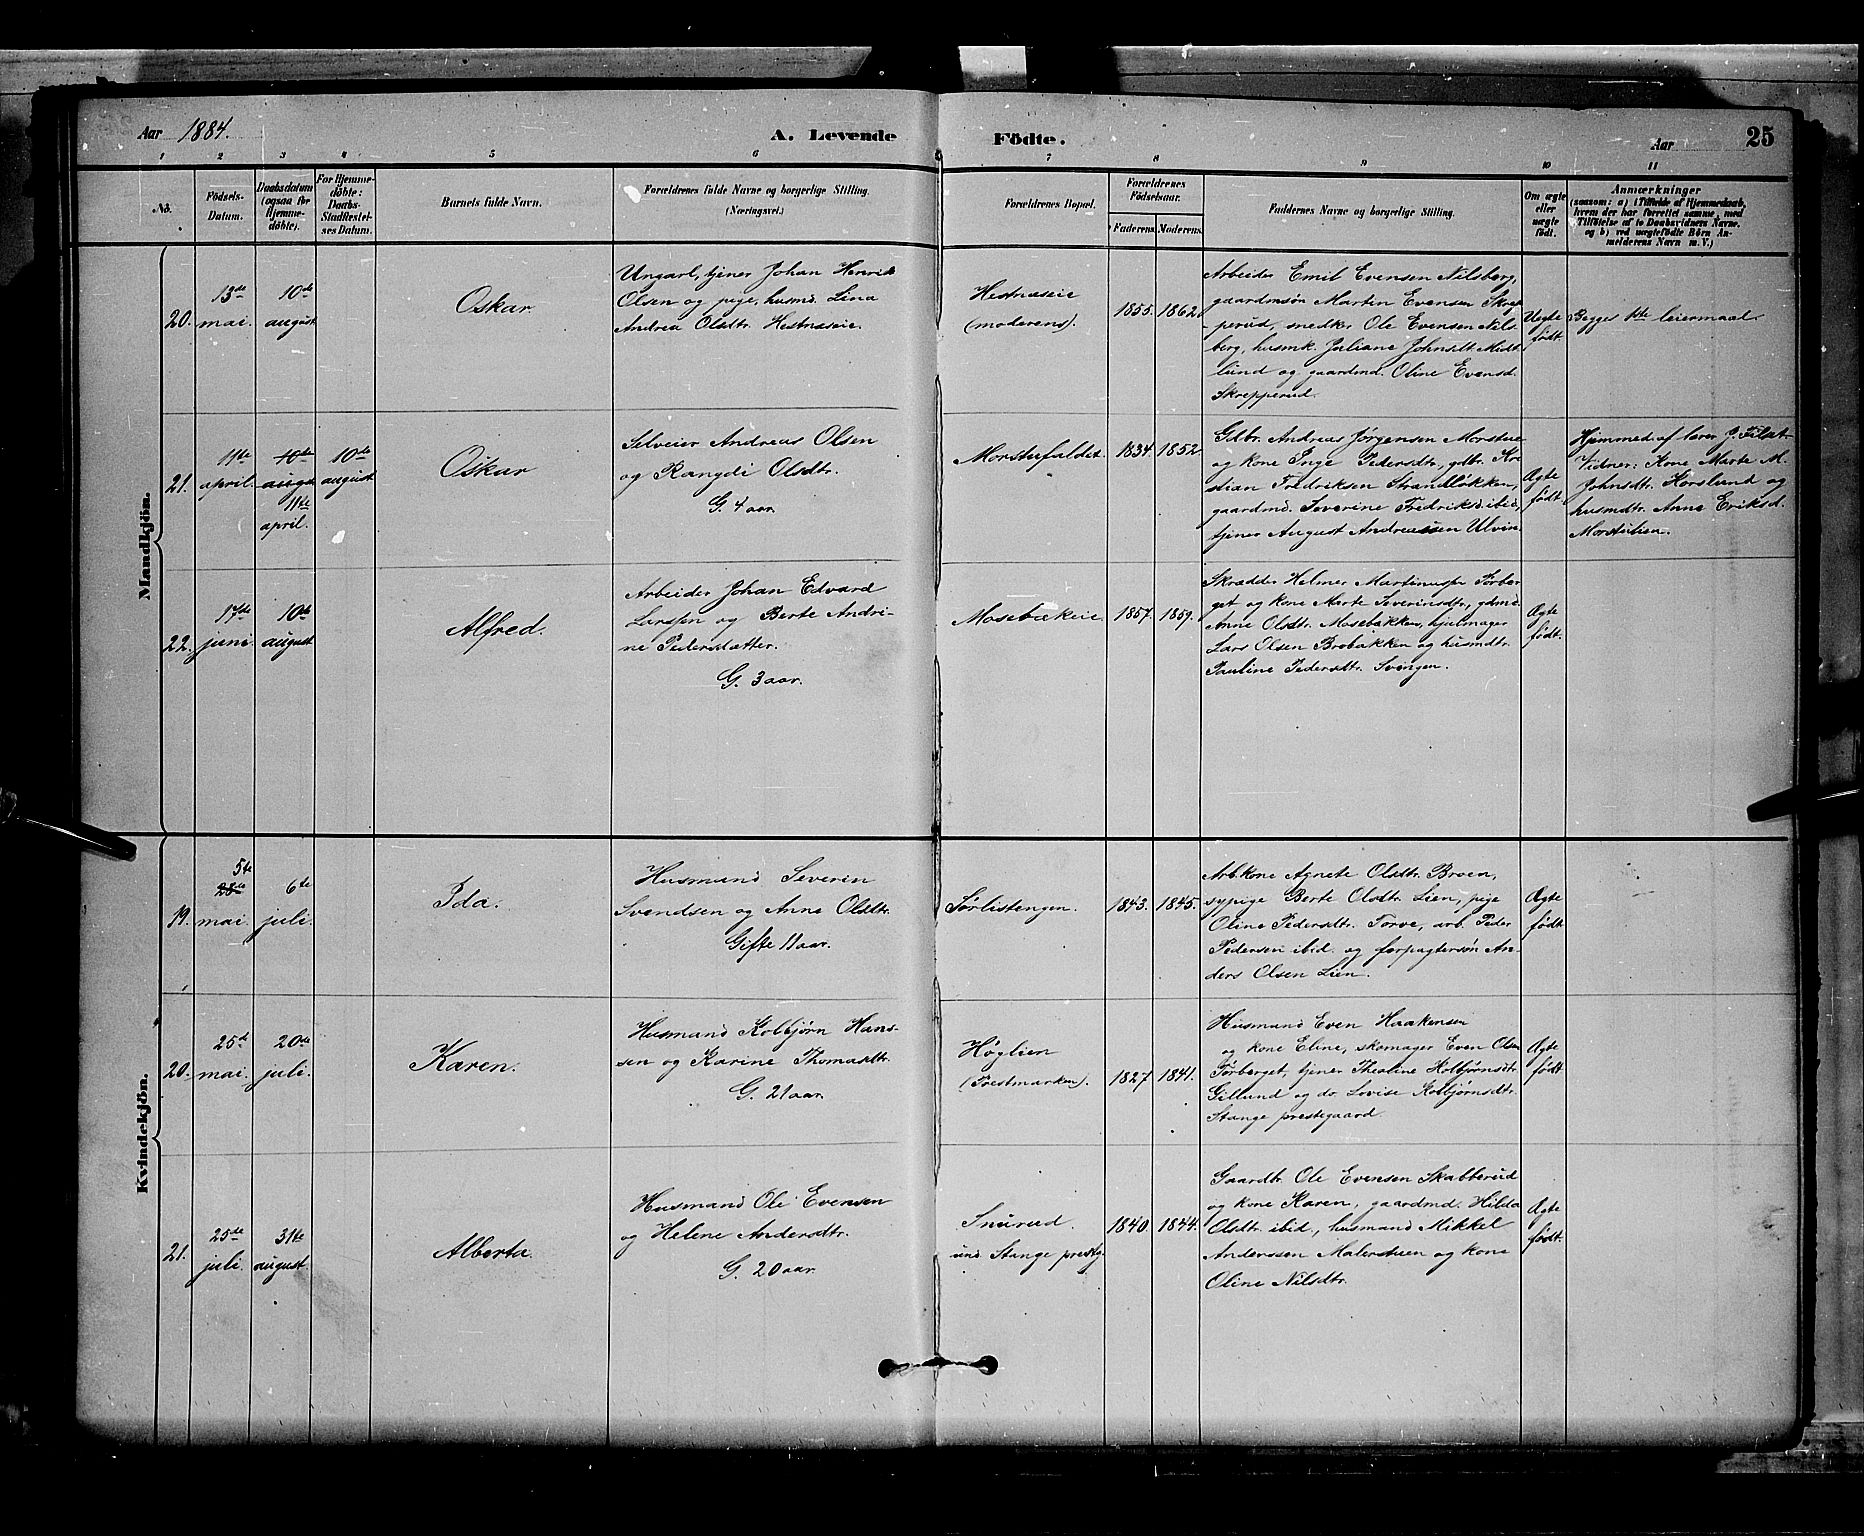 Aar 1884.
A. Levende
Födte.
Aar
25
1 2 3 4 5 6 6 7 8 9 10 11
No.
Födsels-
Datum.
Daabsdatum
(ogsaa for
Hjemme-
döbte).
For Hjemme-
döbte:
Daabs-
Stadfæstel-
ses Datum.
Barnets fulde Navn.
Forældrenes fulde Navne og borgerlige Stilling.
(Næringsvei.)
Forældrenes Bopæl.
Forældrenes
Födselsaar.
Faderens. Moderens.
Faddernes Navne og borgerlige Stilling.
Om ægte
eller
uægte
födt.
Anmærkninger
(saasom: a) i Tilfælde af Hjemmedaab,
hvem der har forrettet samme, med
Tilföielse af to Daabsvidners Navne.
og b) ved uægtefödte Börn An-
melderens Navn m. V.)
Mandkjön.
20.
13de
mai.
10de
august
Oskar.
Ungarl, tjener Johan Henrik
Olsen og pige, husmd. Lina
Andrea Olsdtr. Hestnæseie.
Hestnæseie
(moderens).
1855. 1862.
Arbeider Emil Evensen Nilsberg,
gaardmsøn Martin Evensen Skrep-
perud, snedker Ole Evensen Nils-
berg, husmk. Juliane Johnsdt. Midt-
lund og gaardmd. Oline Evensd.
Skrepperud.
Uegte
født.
Begges 1ste leiermaal.
21.
11te
april.
10de
august
11te
april.
10de
august
Oskar
Selveier Andreas Olsen
og Rangdi Olsdtr.
G. 4 aar.
Morstufaldet.
1834. 1852
Gdbr. Andreas Jørgensen Morstue
og kone Inge Pedersdtr., gdbr. Kri-
stian Fredriksen Strandløkken,
gaardmd. Severine Fredriksd. ibid,
tjener August Andreassen Ulvin.
Ægte
født
Hjemmed. af lærer J. Filset
Vidner: Kone Marte M.
Johnsdtr. Korslund og
husmdtr. Anne Eriksd.
Morstulien.
22.
17de
juni.
10de
august
Alfred.
Arbeider Johan Edvard
Larssen og Berte Andri-
ne Pedersdatter.
G. 3 aar.
Mosebækeie
1857. 1859.
Skrædder Helmer Martinussen Torber-
get og kone Marte Severinsdtr., gdmd.
Anne Olsdtr. Mosebækken, hjulmager
Lars Olsen Brobakken og husmdtr.
Pauline Pedersdtr. Svingen.
Ægte
født.
Kvindekjön.
19.
5te
28de
mai.
6te
juli.
Ida.
Husmand Severin
Svendsen og Anne Olsdtr.
Gifte 11 aar.
Sørlistengen.
1843. 1845.
Arb.kone Agnete Olsdtr. Broen,
sypige Berte Olsdtr. Lien, pige
Oline Pedersdtr. Torve, arb. Peder
Pedersen ibid. og forpagtersøn An-
ders Olsen Lien.
Ægte
født
20.
25de
mai.
20de
juli.
Karen.
Husmand Kolbjørn Hans-
sen og Karine Thomasdtr.
G. 21 aar.
Høglien
(Prestmarken).
1827 1841.
Husmand Even Haakensen
og kone Eline, skomager Even Olsen
Torberget, tjener Theoline Kolbjørnsdtr.
Gillund og do. Lovise Kolbjørnsdtr.
Stange prestegaard.
Ægte
født
21.
25de
juli.
31te
august.
Alberta.
Husmand Ole Evensen
og Helene Andersdtr.
G. 20 aar.
Snurud.
und. Stange prestg.
1840. 1844.
Gaardbr. Ole Evensen Skabberud
og kone Karen, gaardmd. Hilda
Olsdtr. ibid, husmand Mikkel
Anderssen Malersteen og kone
Oline Nilsdtr.
Ægte
født.